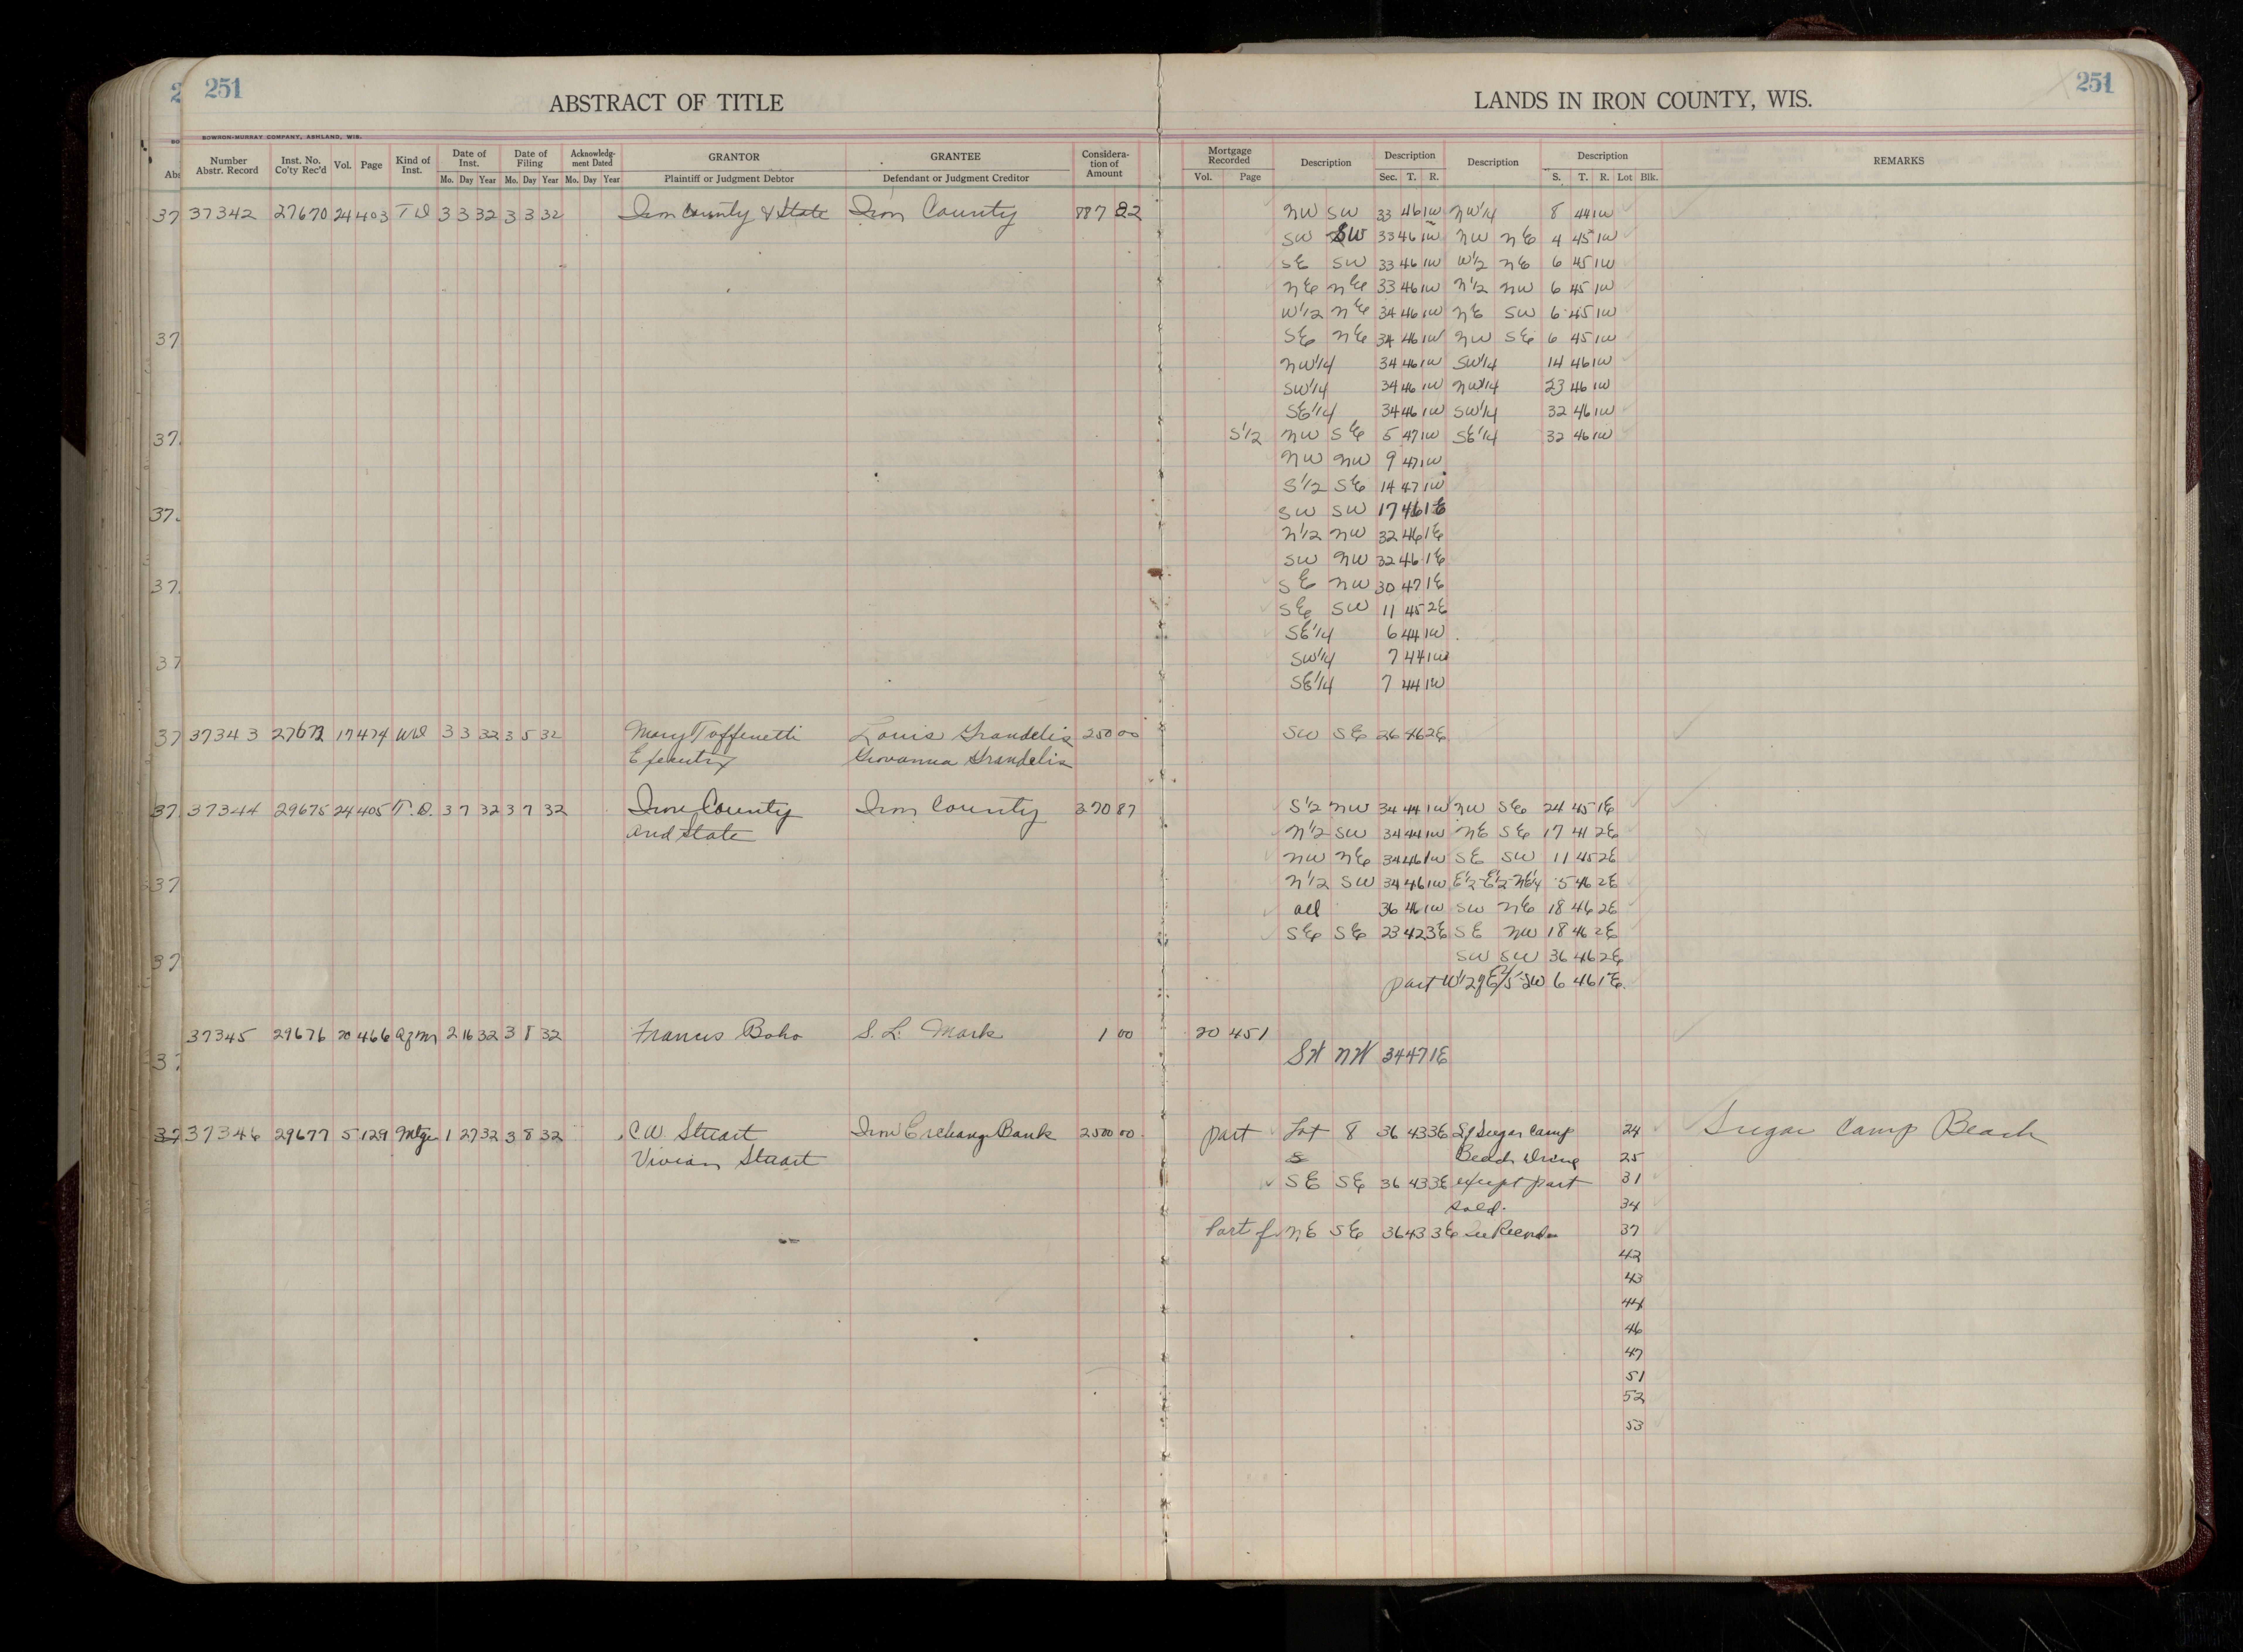 251
ABSTRACT OF TITLE
LANDS IN IRON COUNTY, WIS.
251
BOWRON-MURRAY COMPANY, ASHLAND, WIS.
Number Abstr. Record Inst. No. Co'ty Rec'd Vol. Page Kind of Inst. Date of Inst. Date of Filing Acknowledg-ment Dated GRANTOR GRANTEE Considera-tion of Amount Mortgage Recorded Description Description Description Description REMARKS
Mo. Day Year Mo. Day Year Mo. Day Year Plaintiff or Judgment Debtor Defendant or Judgment Creditor Vol. Page Sec. T. R. S. T. R. Lot Blk.
37342 27670 24 403 T D 3 3 32 3 3 32 Iron County & State Iron County 887 82 NW SW 33 46 1W NW1/4 8 44 1W
SW SW 33 46 1W NW NE 4 45 1W
SE SW 33 46 1W W1/2 NE 6 45 1W
NE NE 33 46 1W N1/2 NW 6 45 1W
W1/2 NE 34 46 1W NE SW 6 45 1W
SE NE 34 46 1W NW SE 6 45 1W
NW1/4 34 46 1W SW1/4 14 46 1W
SW1/4 34 46 1W NW1/4 23 46 1W
SE1/4 34 46 1W SW1/4 32 46 1W
S1/2 NW SE 5 47 1W SE1/4 32 46 1W
NW NW 9 47 1W
S1/2 SE 14 47 1W
SW SW 17 46 1E
N1/2 NW 32 46 1E
SW NW 32 46 1E
SE NW 30 47 1E
SE SW 11 45 2E
SE1/4 6 44 1W
SW1/4 7 44 1W
SE1/4 7 44 1W
37343 17 474 WD 3 3 32 3 5 32 Mary Toffenetti Louis Grandelis 250 00 SW SE 26 46 2E
Executrix Giovanna Grandelis
37344 29675 24 405 T.D. 3 7 32 3 7 32 Iron County Iron County 370 87 S1/2 NW 34 44 1W NW SE 24 45 1E
and State N1/2 SW 34 44 1W NE SE 17 41 2E
NW NE 34 46 1W SE SW 11 45 2E
N1/2 SW 34 46 1W E1/2 E1/2 NE1/4 5 46 2E
all 36 46 1W SW NE 18 46 2E
SE SE 23 42 3E SE NW 18 46 2E
SW SW 36 46 2E
part W1/2 of SW 6 46 1E
37345 29676 20 466 Agm 2 16 32 3 8 32 Francis Boho S. L. Mark 1 00 20 451
SW NW 34 47 1E
37346 29677 5 129 Mtge 1 27 32 3 8 32 C.W. Stuart Iron Exchange Bank 2500 00 part Lot 8 36 43 3E Of Sugar Camp 24 Sugar Camp Beach
Vivian Stuart Beach 25
SE SE 36 43 3E except part 31
sold. 34
Part of NE SE 36 43 3E See Records 37
42
43
44
46
47
51
52
53